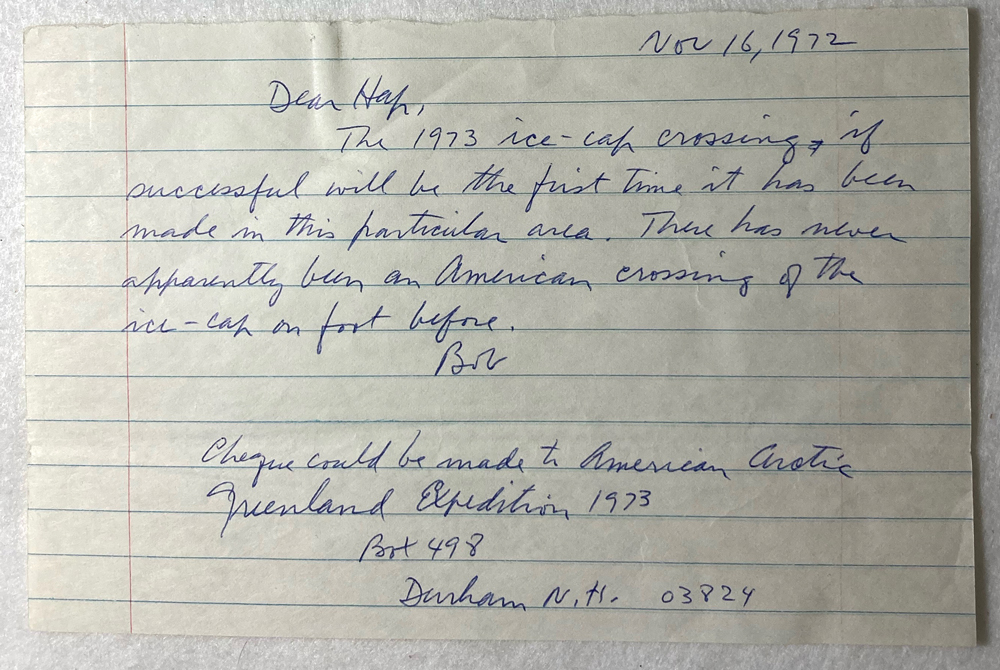 Nov 16, 1972
Dear Hap,
The 1973 ice-cap crossing, if
successful will be the first time it has been
made in this particular area. There has never
apparently been an American crossing of the
ice-cap on foot before.
Bob
Cheque could be made to American Arctic
Greenland Expedition 1973
Box 498
Durham N.H. 03824